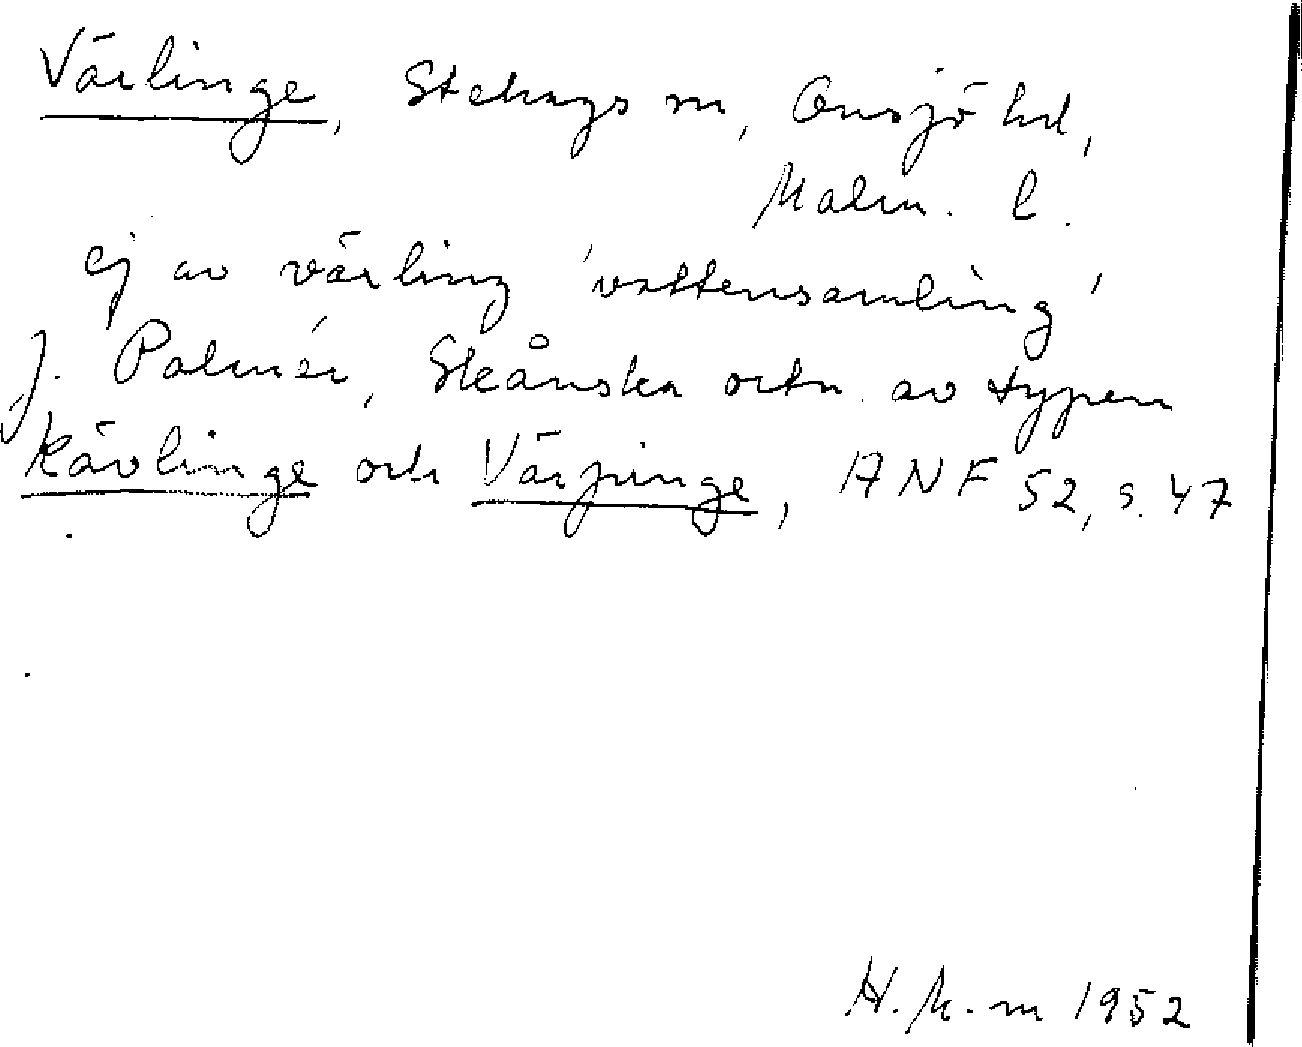 Värlinge, Stehags sn, Onsjö hd,
Malm. l.
ej av värling 'vattensamling'
J. Palmér, Skånska ortn. av typen
Kävlinge och Värpinge, ANF 52, s. 47
H. M-m 1952